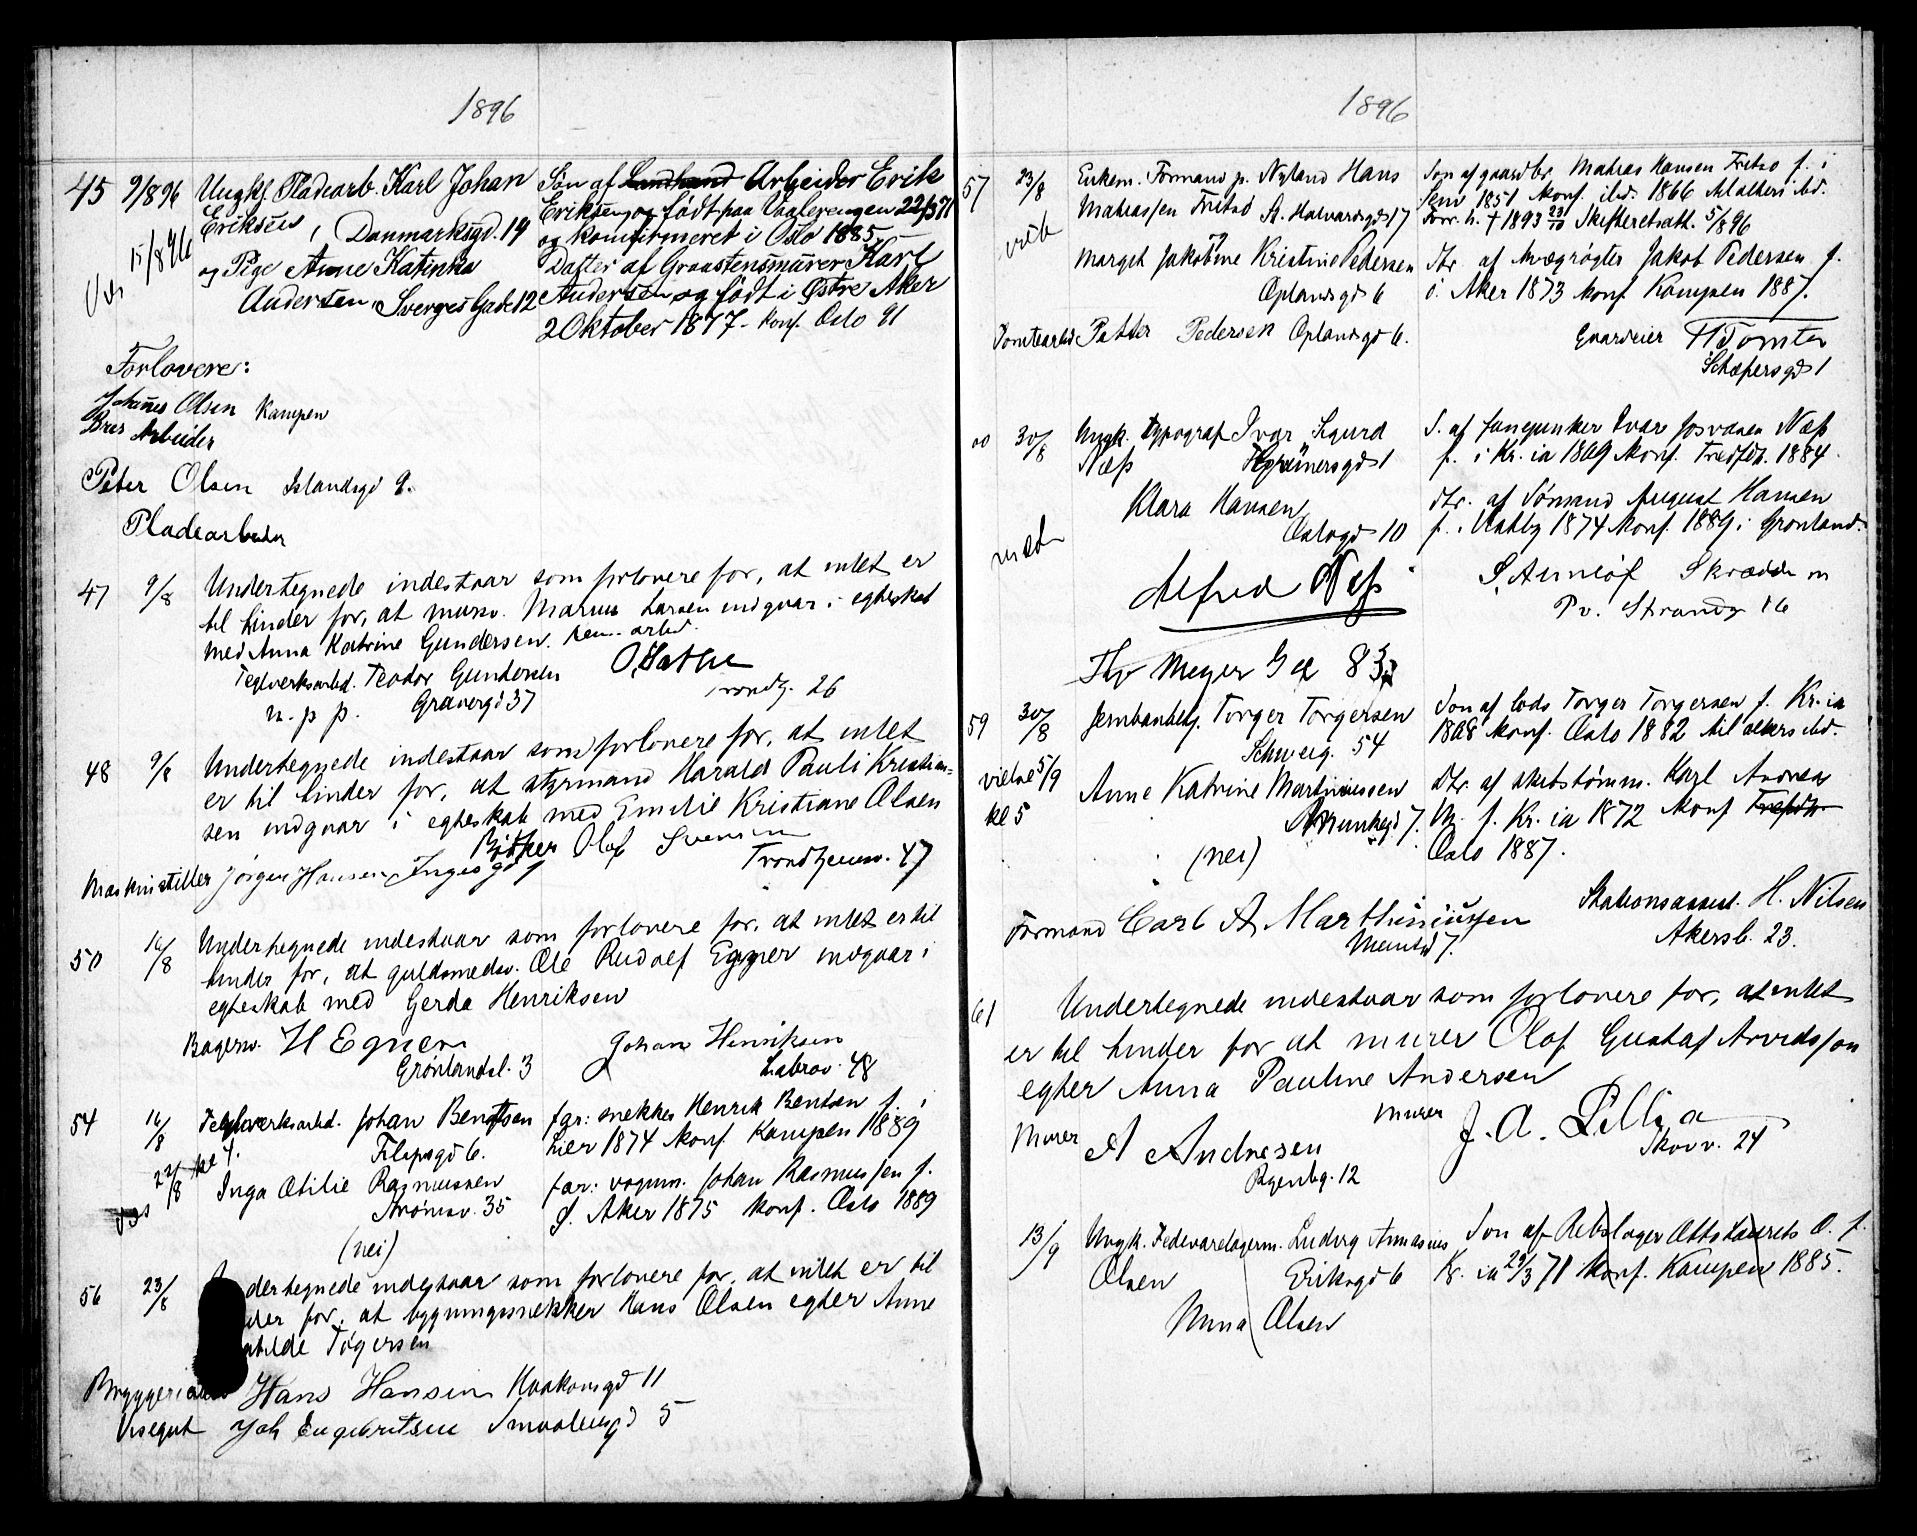 1896
45 9/8 96 Ungk. Pladearb. Karl Johan
Eriksen, Danmarksgd. 19
15/8 96
og Pige Anne Katinka
Andersen, Sverges Gade 12
Søn af Arbeider Erik
Eriksen og født paa Vaalerengen 22/3 71
og konfirmeret i Oslo 1885
Datter af Graastensmurer Karl
Andersen og født i Østre Aker
2 Oktober 1877 - konf. Oslo 91
Forlovere:
Johanes Olsen Kampen
Arbeider
Peter Olsen Islandsgd 9.
Pladearbeider
47 9/8 Undertegnede indestaar som forlovere for, at intet er
til hinder for, at mursv. Marius Larsen indgaar i egteskab
med Anna Katrine Gundersen.
Teglverksarbd. Teodor Gundersen
m. p. p. Gravergd 37
26
48 9/8 Undertegnede indestaar som forlovere for, at intet
er til hinder for, at styrmand Harald Pauli Kristian=
sen indgaar i egteskab med Emilie Kristiane Olsen
Bødker Olaf Svensen
Trondhjemsv. 47
Maskinstiller Jørgen Hansen Ingesgd 9
50 16/8 Undertegnede indestaar som forlovere for, at intet er til
hinder for, at guldsmedsv. Ole Rudolf Egner indgaar i
egteskab med Gerda Henriksen
Bagersv. H Egner
Grønlandsl. 3
Johan Henriksen
Labrov. 48
54 16/8 Teglverksarbd. Johan Bendtsen
Filipsgd 6.
22/8 kl 4.
Inga Otilie Rasmussen
Strømsv. 35
(nei)
far: snekker Henrik Bentsen f. i
Lier 1874 konf Kampen 1889
far: vognm. Johan Rasmussen f.
Ø. Aker 1875 konf. Oslo 1889
56 23/8 dertegnede indestaar som forlovere for, at intet er til
der for, at bygningssnekker Hans Olsen egter Anne
Tøgersen
Hans Hansen Haakonsgd 11
Visegut Joh Engebritsen Smaalensgd 5
1896
57 23/8 Enkem. Formand p. Nyland Hans
Mathiassen Fretsø St. Halvardsgd 17
og
Marget Jakobine Kristine Pedersen
Oplandsgd 6
Søn af gaardbr. Matias Hansen Fretsø f. i
1851 konf. ibd. 1866
Forr. h. † 1893 23/10 Skifteretsatt. 5/8 96
dtr. af Jakob Pedersen f.
ø. Aker 1873 konf. Kampen 1887.
Tomtearbd Petter Pedersen Oplandsgd 6.
Gaardeier H Tomter
Schæpersgd 1
30/8 Ungk. typograf Ivar Sigurd
Næss
Klara Hansen
Oslogd 10
S. af Ivar Josvasen Næss
f. i Kr.ia 1869 konf. Trefdh. 1884.
dtr. af Sømand August Hansen
f. i Vestby 1874 konf. 1889 i Grønland.
Alfred Næss
Skrædder m
Pv. Strandg 16
Thv Meyer Gd 83
59 30/8 Jernbanbetj. Torger Torgersen
Schweig. 54
5/9
kl 5
Anne Katrine Martiniussen
Munkegd 7.
(nei)
Søn af lods Torger Torgersen f. Kr.ia
1868 konf. Oslo 1882 til alters ibd.
dtr. af skibstømm. Karl Andreas
M. f. Kr.ia 1872 konf Trefdh.
Oslo 1887.
Formand Carl A Marthiniussen
Munkegd 7.
Stationsassist. H. Nilsen
Akersb. 23.
61 Undertegnede indestaar som forlovere for, at intet
er til hinder for at murer Olof Gustaf Arvidsson
egter Anna Pauline Andersen
Murer A Andresen
12
murer J. A. Lillja
Skovv. 24
13/9 Ungk. Fedevarelagerm. Ludvig Olsen
Eriksgd 6
Minna Olsen
Søn af Rebslager Otto Laurits O. f.
Kr.ia 29/3 71 konf. Kampen 1885.